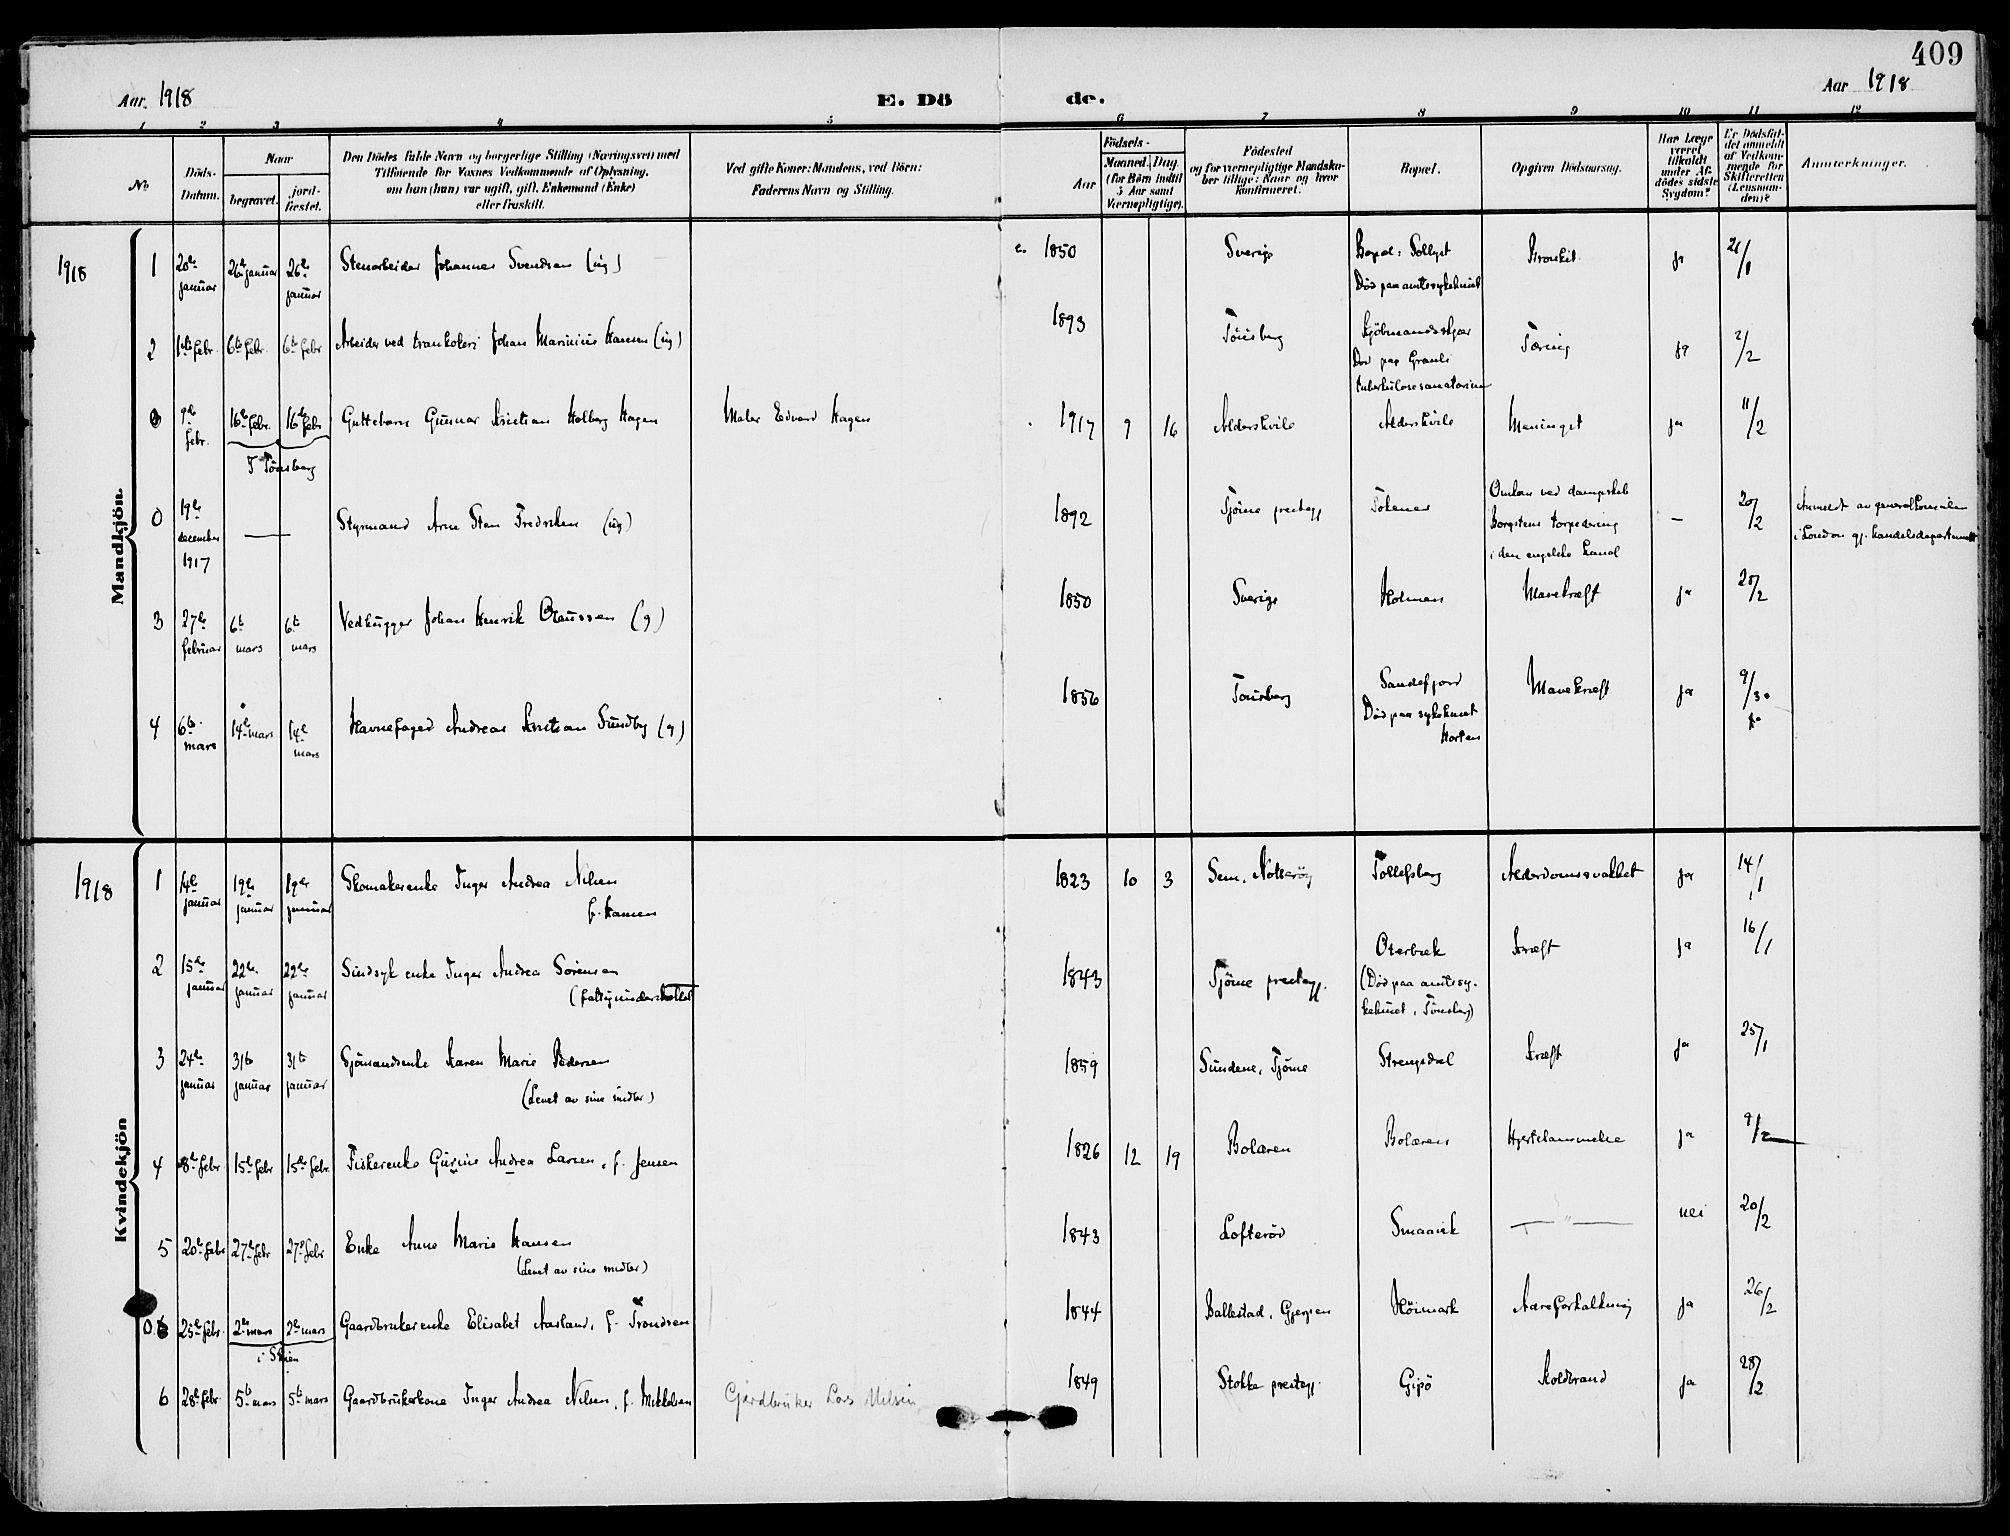 409
Aar 1918
Aar 1918
E. Dö
de.
1 2 3 4 5 6 7 8 9 10 11 12
No
Döds-
Datum.
Naar
begravet.
jord-
fæstet.
Den Dödes fulde Navn og borgerlige Stilling (Næringsvei) med
Tilföiende for Voxnes Vedkommende af Oplysning,
om han (hun) var ugift, gift, Enkemand (Enke)
eller fraskilt.
Ved gifte Koner: Mandens, ved Börn:
Faderens Navn og Stilling.
Födsels-
Aar
Maaned. Dag.
(for Börn indtil
5 Aar samt
Værnepligtige).
Födested
og for værnepligtige Mandska-
ber tillige: Naar og hvor
konfirmeret.
Bopæl.
Opgiven Dödsaarsag.
Har Læge
været
tilkaldt
under Af-
dödes sidste
Sygdom?
Er Dödsfal-
det anmeldt
af Vedkom-
mende for
Skifteretten
(Lensman-
den)?
Anmerkninger.
Mandkjön.
1918
1 20de januar 26de januar 26de januar Stenarbeider Johannes Svendsen (ug) 1850 Sverige Bopæl: Sollyst
Död paa amtssykehuset Bronkit ja 21/1
2 1ste febr. 6te febr. 6te febr Arbeider ved trankokeri Johan Marinius Hansen (ug) 1893 Tönsberg Kjöbmandsskjær
Död paa Granli
tuberkulosesanatorium Tæring ja 2/2
0 9de febr. 16de febr. 16de febr Guttebarn Gunnar Kristian Holberg Hagen Maler Edvard Hagen 1917 9 16 Aldershvile Aldershvile Meningit ja 11/2
I Tönsberg
0 19de december 1917 — Styrmand Arne Sten Fredriksen (ug) 1892 Tjöme prestegj. Tokenes Omkom ved dampskib
Borgstens torpedering
i den engelske kanal — 20/2 Anmeldt av generalkonsulen
i London gj. handelsdepartementet
3 27de februar 6te mars 6te mars Vedhugger Johan Henrik Olaussen (g) 1850 Sverige Holmen Mavekræft ja 28/2
4 6te mars 14de mars 14de mars Havnefoged Andreas Kristian Sundby (g) 1856 Tönsberg Sandefjord
Död paa sykehuset
Horten Mavekræft ja 9/3
Kvindekjön
1918
1 14de januar 19de januar 19de januar Skomakerenke Inger Andrea Nilsen
f. Hansen 1823 10 3 Sem, Nötteröy Tollefsberg Alderdomssvakhet ja 14/1
2 15de januar 22de januar 22de januar Sindsyk enke Inger Andrea Sörensen
(fattigunderstöttet 1843 Tjöme prestegj. Oterbæk
(Död paa amtssy-
kehuset, Tönsberg) Kræft ja 16/1
3 24de januar 31te januar 31te januar Sjömandsenke Karen Marie Pedersen
(Levet av sine midler) 1859 Sundene, Tjöme Strengsdal Kræft ja 25/1
4 8de febr 15de febr 15de febr. Fiskerenke Gurine Andrea Larsen, f. Jensen 1826 12 19 Bolæren Bolæren Hjertelammelse ja 9/2
5 20de febr 27de febr 27de febr Enke Anne Marie Hansen
(Levet av sine midler) 1843 Lofteröd Smaavik — " — nei 20/2
0. 25de febr. 2den mars 2den mars Gaardbrukerenke Elisabet Aasland, f. Trondsen 1844 Ballestad, Gjerpen Höimark Aareforkalkning ja 26/2
i Skien
6 28de febr 5te mars 5te mars Gaardbrukerkone Inger Andrea Nilsen, f. Mikkelsen Gårdbruker Lars Nilsen 1849 Stokke prestegj. Gipö Koldbrand ja 28/2